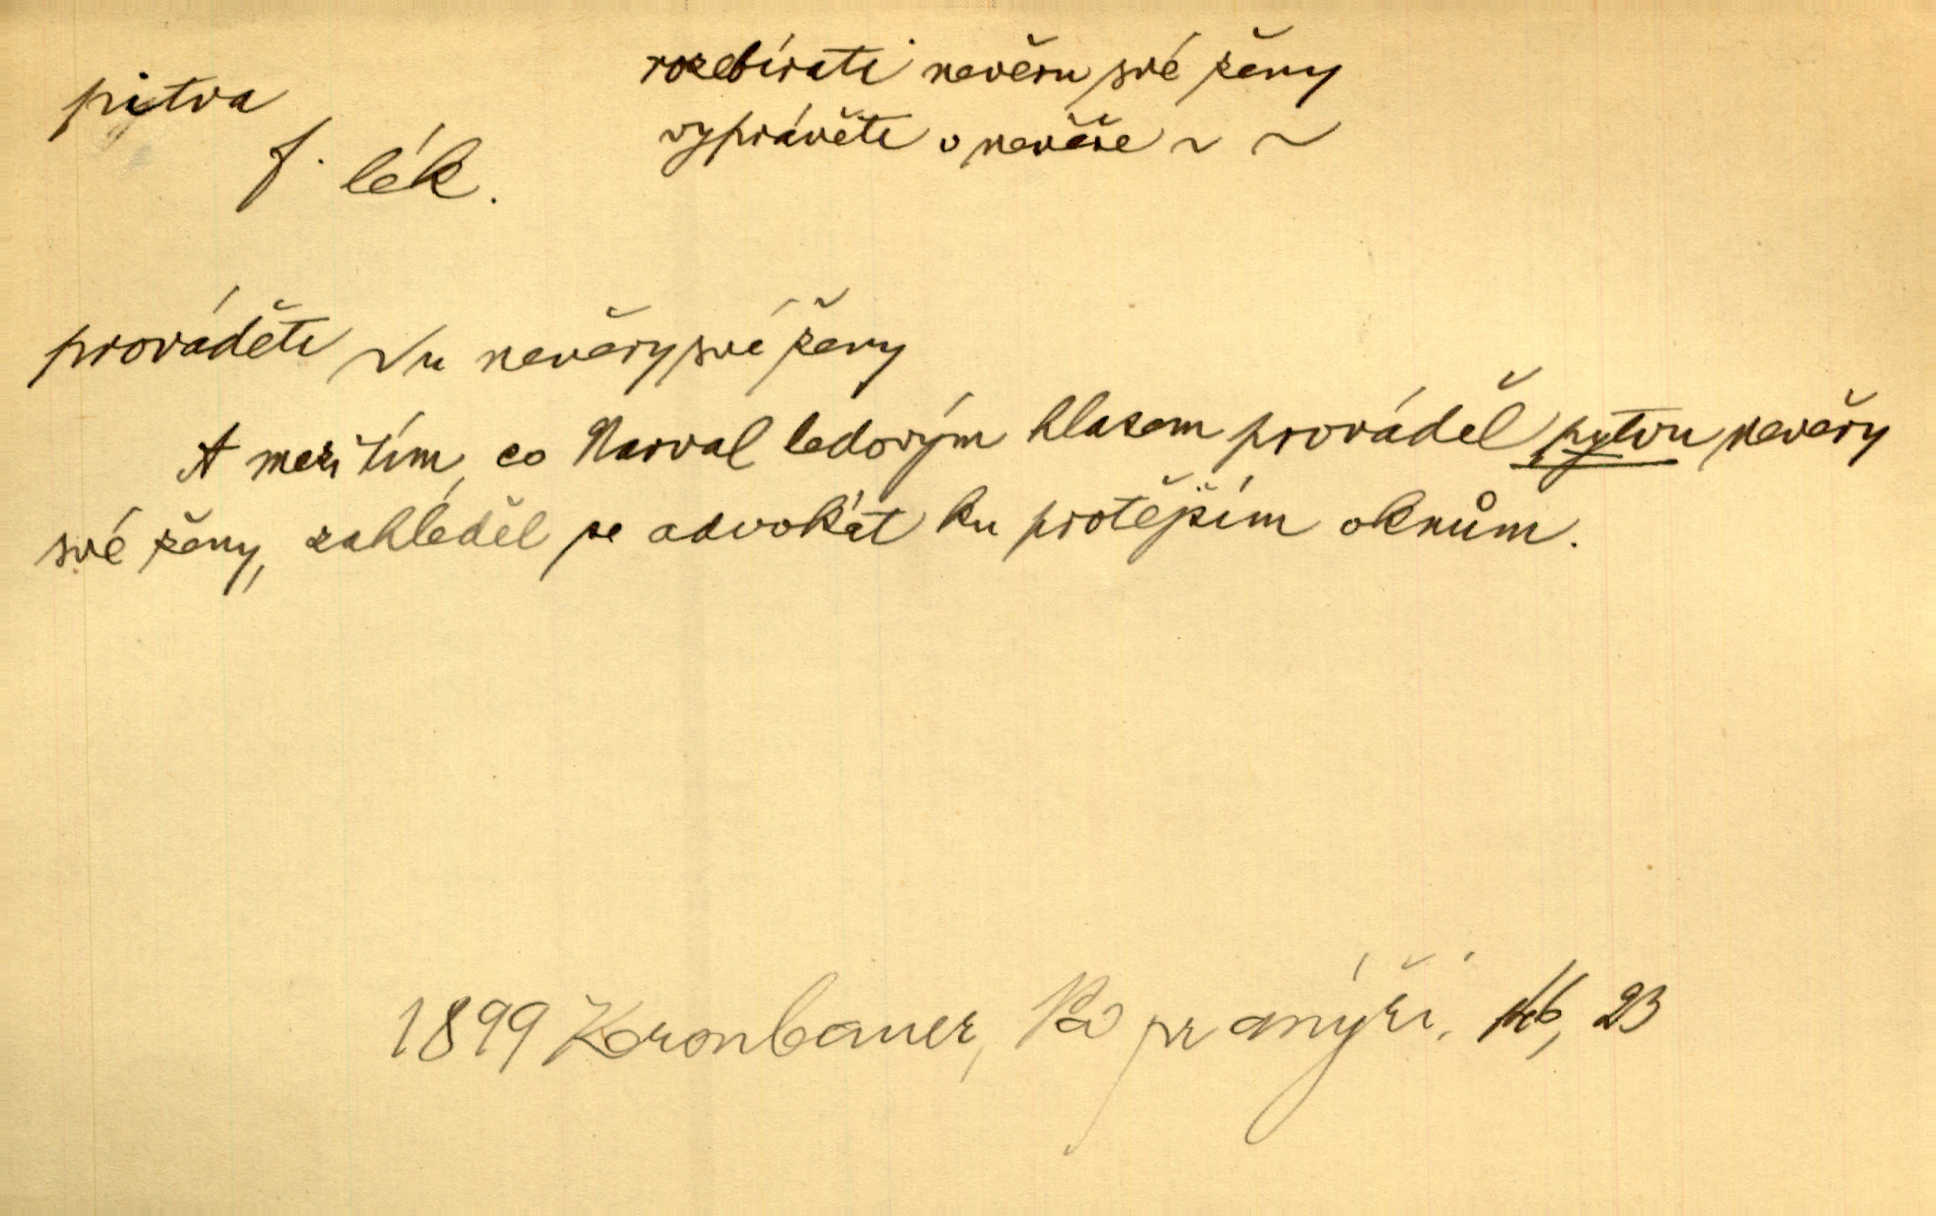 pitva
f. lék.
rozebírati nevěru své ženy
vyprávěti o nevěře ~ ~
prováděti ~u nevěry své ženy
A mezi tím, co Narval ledovým hlasem prováděl pytvu nevěry
své ženy, zahleděl se advokát ku protějším oknům.
1899 Kronbauer, pranýři. 23